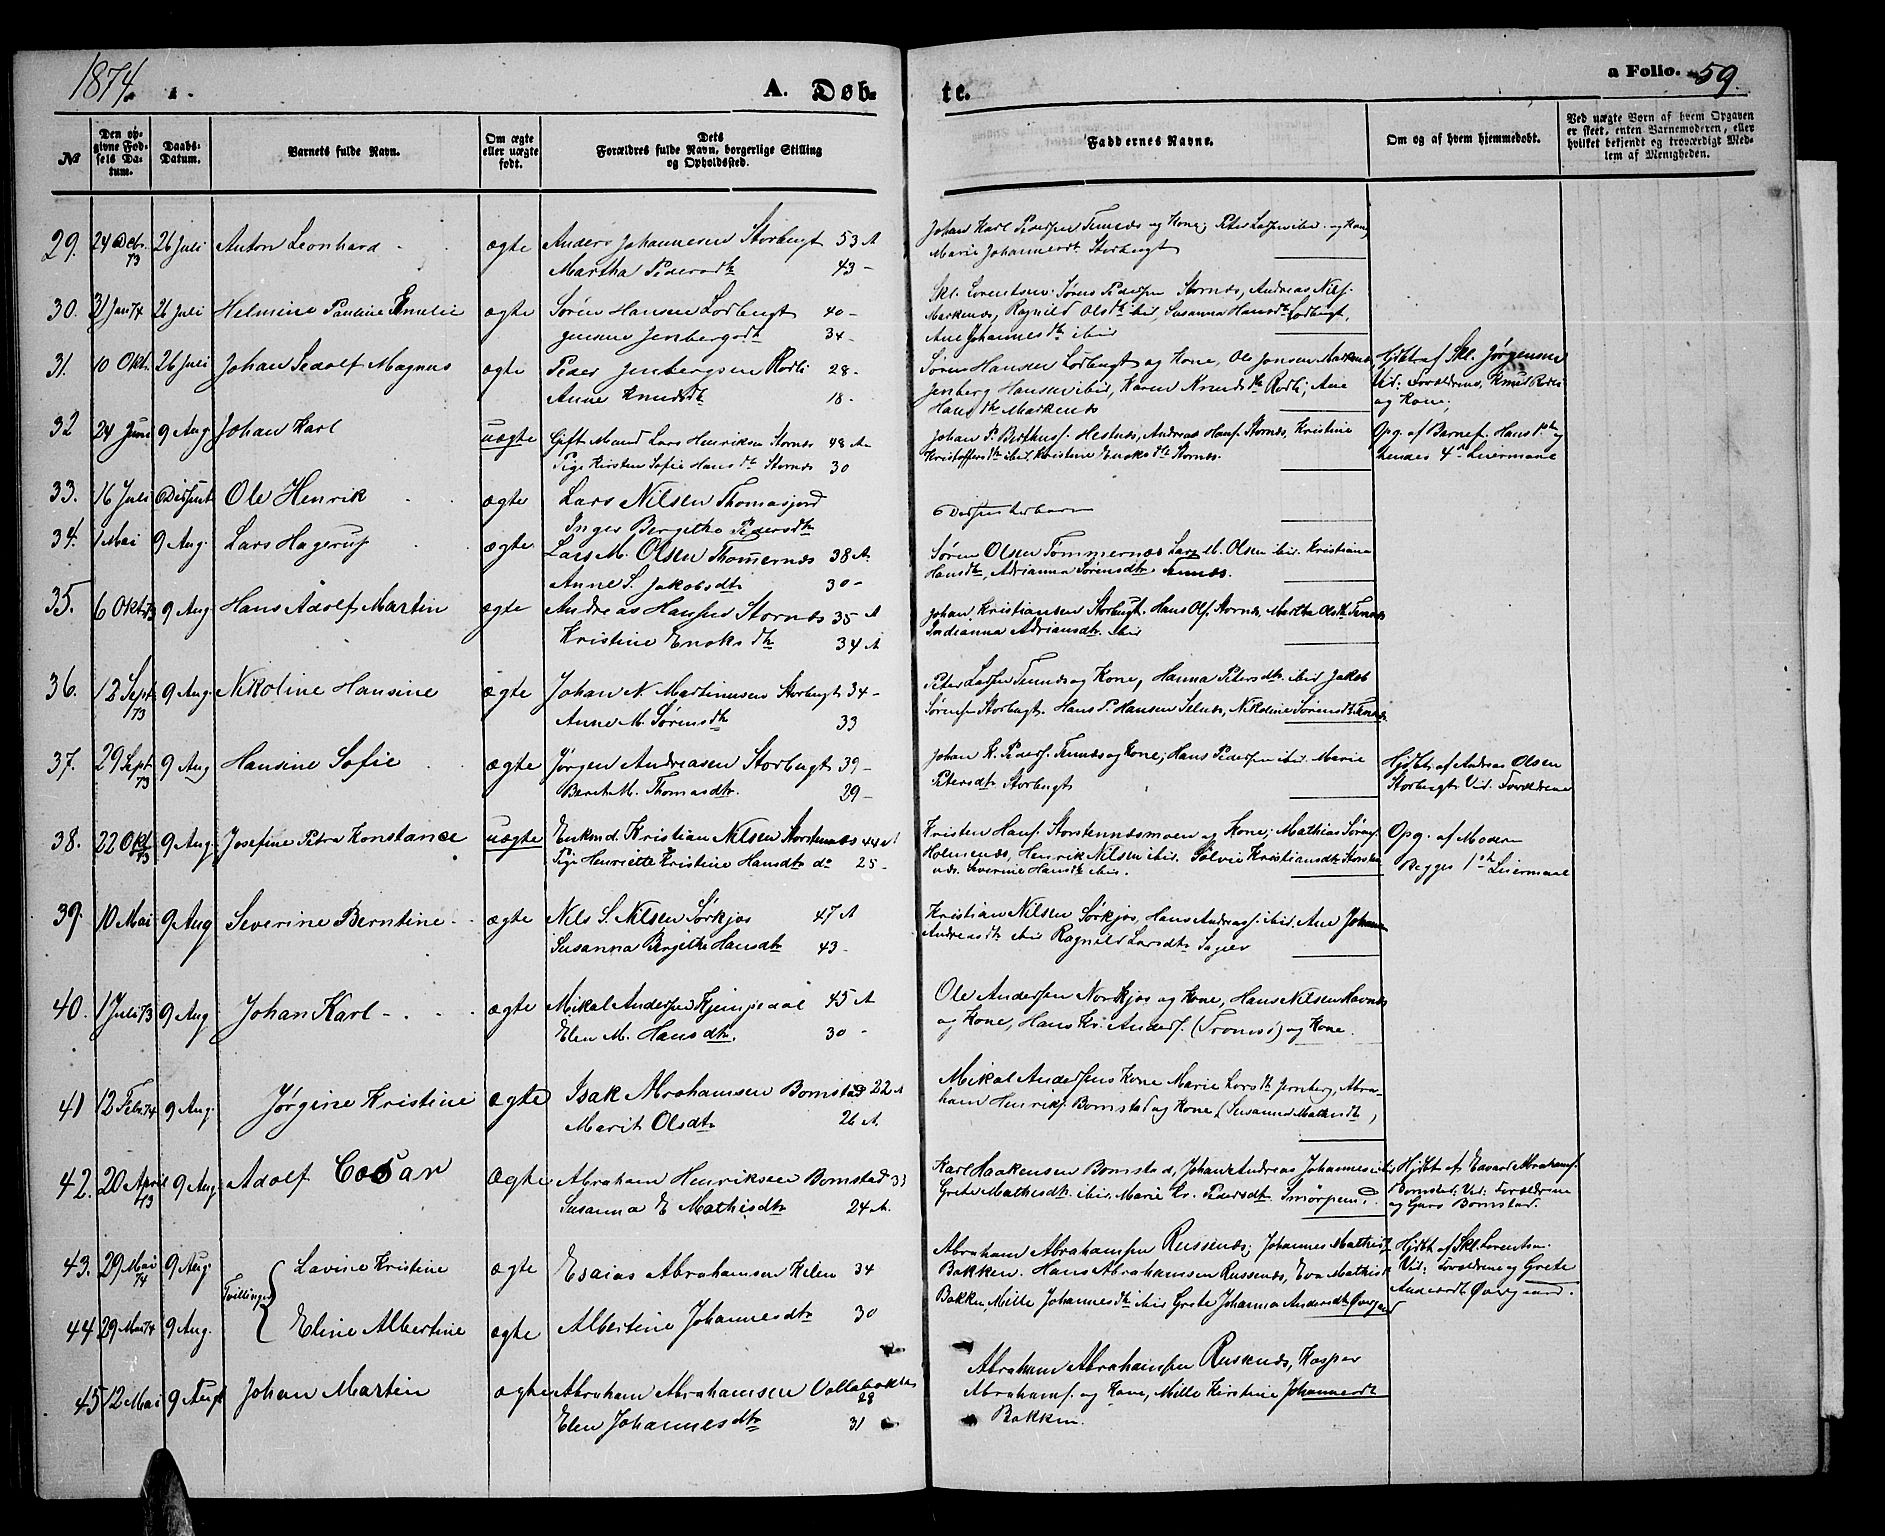 1874.
A. Døb-
te.
a Folio. 59.
№
Den opgivne Fødsels Datum.
Daabs-Datum.
Barnets fulde Navn.
Om ægte eller uægte født.
Dets Forældres fulde Navn, borgerlige Stilling og Opholdssted.
Faddernes Navne.
Om og af hvem hjemmedøbt.
Ved uægte Børn af hvem Opgaven er skeet, enten Barnemoderen, eller hvilket bekjendt og troværdigt Medlem af Menigheden.
29. 24 Dcbr. 73 26 Juli Anton Leonhard ægte Anders Johannesen Storbugt 53 A
Martha Pedersdtr 43 -
Johan Karl Pedersen Tennæs og Kone; Peter Larsen ibid. og Kone
Marie Johannesdt Storbugt
30. 21 Jan 74 26 Juli Helmine Pauline Emelie ægte Søren Hansen Lodbugt 40 -
Jensine Jenbergsdt 34 -
Skl. Lorentsen. Søren Pedersen Stornæs, Andreas Nils.
Markenæs, Ragnild Olsdtr ibid, Susanna Hansdtr Lodbugt,
Ane Johannesdtr ibid
31. 10 Okt. 26 Juli Johan Sedolf Magnus ægte Peder Jenbergsen Rødli 28 -
Anne Knudsdtr 18 -
Søren Hansen Lodbugt og Kone, Ole Jonsen Markenæs
Jenberg Hansen ibid, Karen Knudsdtr Rødli; Ane
Hansdtr Markenæs
Hjdbt af Skl. Jørgensen
Vid: Forældrene, Knud Rødli
og Kone;
32 24 Juni 9 Aug Johan Karl uægte Gift Mand Lars Henriksen Stornæs 48 A
Pige Kirsten Sofie Hansdtr Stornæs 30
Johan P. Berthus. Hestnæs, Andreas Hans. Stornæs, Kristine
Kristoffersdtr ibid. Kristine Enoksdtr Stornæs.
Opg. af Barnef.
hendes 4de Leiermaal
33. 16 Juli Dissent Ole Henrik ægte Lars Nilsen Thomasjord
Inger Bergithe Pedersdtr
Dissenterbarn
34. 1 Mai 9 Aug. Lars Hagerup ægte Lars M. Olsen Thomernæs 38 A
Anne S. Jakobsdtr 30 -
Søren Olsen Tømmernæs Lars M. Olsen ibid. Kristiana
Hansdtr, Adrianna Sørensdtr. Tennæs.
35. 6 Okt 73 9 Aug. Hans Adolf Martin ægte Andreas Hansen Stornæs 35 A
Kristine Enoksdtr 34 A
Johan Kristiansen Storbugt. Hans Ols. Stornæs, Martha Olsdt. Tennæs
Indianna Adriansdtr. ibid
36. 12 Sept 73 9 Aug. Nikoline Hansine ægte Johan N. Martinusen Storbugt 34 -
Anne M. Sørensdtr 33
Peter Larsen Tennæs og Kone, Hanna Petersdtr ibid Jakob
Sørensen Storbugt. Hans P. Hansen Selnæs, Nikoline Sørensdtr Tennæs
37. 29 Sept. 73 9 Aug Hansine Sofie ægte Jørgen Andreasen Storbugt 39 -
Berit M. Thomasdtr. 29 -
Johan K. Peders. Tennæs og Kone; Hans Pedersen ibid. Marie
Petersdtr Storbugt
Hjdbt. af Andreas Olsen
Storbugt Vid. Forældrene
38. 22 Okt 73 9 Aug. Josefine Petra Konstance uægte Enkmd. Kristian Nilsen Storstennæs 44 A
Pige Henriette Kristine Hansdtr do 25 -
Kristen Hans. Storstennæsmoen og Kone; Mathias Sørens.
Holmenæs, Henrik Nilsen ibid. Sølvie Kristiansdtr Storsten
næs. Severine Hansdtr ibid.
Opg. af Modern
Begges 1ste Leiermaal
39. 10 Mai 9 Aug Severine Berntine ægte Nils S. Nilsen Sørkjos 47 A
Susanna Birgithe Hansdtr 43 -
Kristian Nilsen Sørkjos, Hans Andreas. ibid, Ane Johanna
Andreasdtr ibid Ragnild Larsdtr
40. 1 Juli 73 9 Aug. Johan Karl ægte Mikal Andersen Kjempedal 45 A
Elen M. Hansdtr. 30 -
Ole Andersen Nordkjos og Kone, Hans Nilsen Havnæs
og Kone, Hans Kr. Anders. (Tromsø) og Kone.
41 12 Febr 74 9 Aug. Jørgine Kristine ægte Isak Abrahamsen Bomstad 22 A
Marit Olsdtr 26 A.
Mikal Andersens Kone Marie Larsdtr Jernberg, Abra-
ham Henriks. Bomstad og Kone, (Susanna Mathisdtr)
42. 20 April 73 9 Aug. Adolf Cesar Ægte Abraham Henriksen Bomstad 33
Susanna E Mathisdtr 24 A.
Karl Haakensen Bomstad, Johan Andreas Johannesen ibid,
Grete Mathisdtr. ibid, Marie Kr. Pedersdtr.
Hjdbt. af Edvard Abrahams.
Bomstad. Vid: Forældrene
og Guro Bomstad.
43. 29 Mai 74 9 Aug. Tvillinger Lavine Kristine ægte Esaias Abrahamsen Kilen 34
Abraham Abrahamsen Russenæs; Johannes Mathis.
Bakken. Hans Abrahamsen Russenæs, Eva Mathisdt.
Bakken, Mille Johannesdtr ibid Grete Johanna Andersdt Øvergaard
Hjdbt af Skl. Lorentsen.
Vid: Forældrene og Grete
Andersdt Øvergaard.
44 29 Mai 74 9 Aug. Eline Albertine ægte Albertine Johannesdtr 30
45 12 Mai 9 Aug. Johan Martin ægte Abraham Abrahamsen Vollabakken 28
Elen Johannesdtr 31
Abraham Abrahamsen Russenæs, Kasper
Abrahams. og Kone, Mille Kirstine Johannesdt
Bakken.